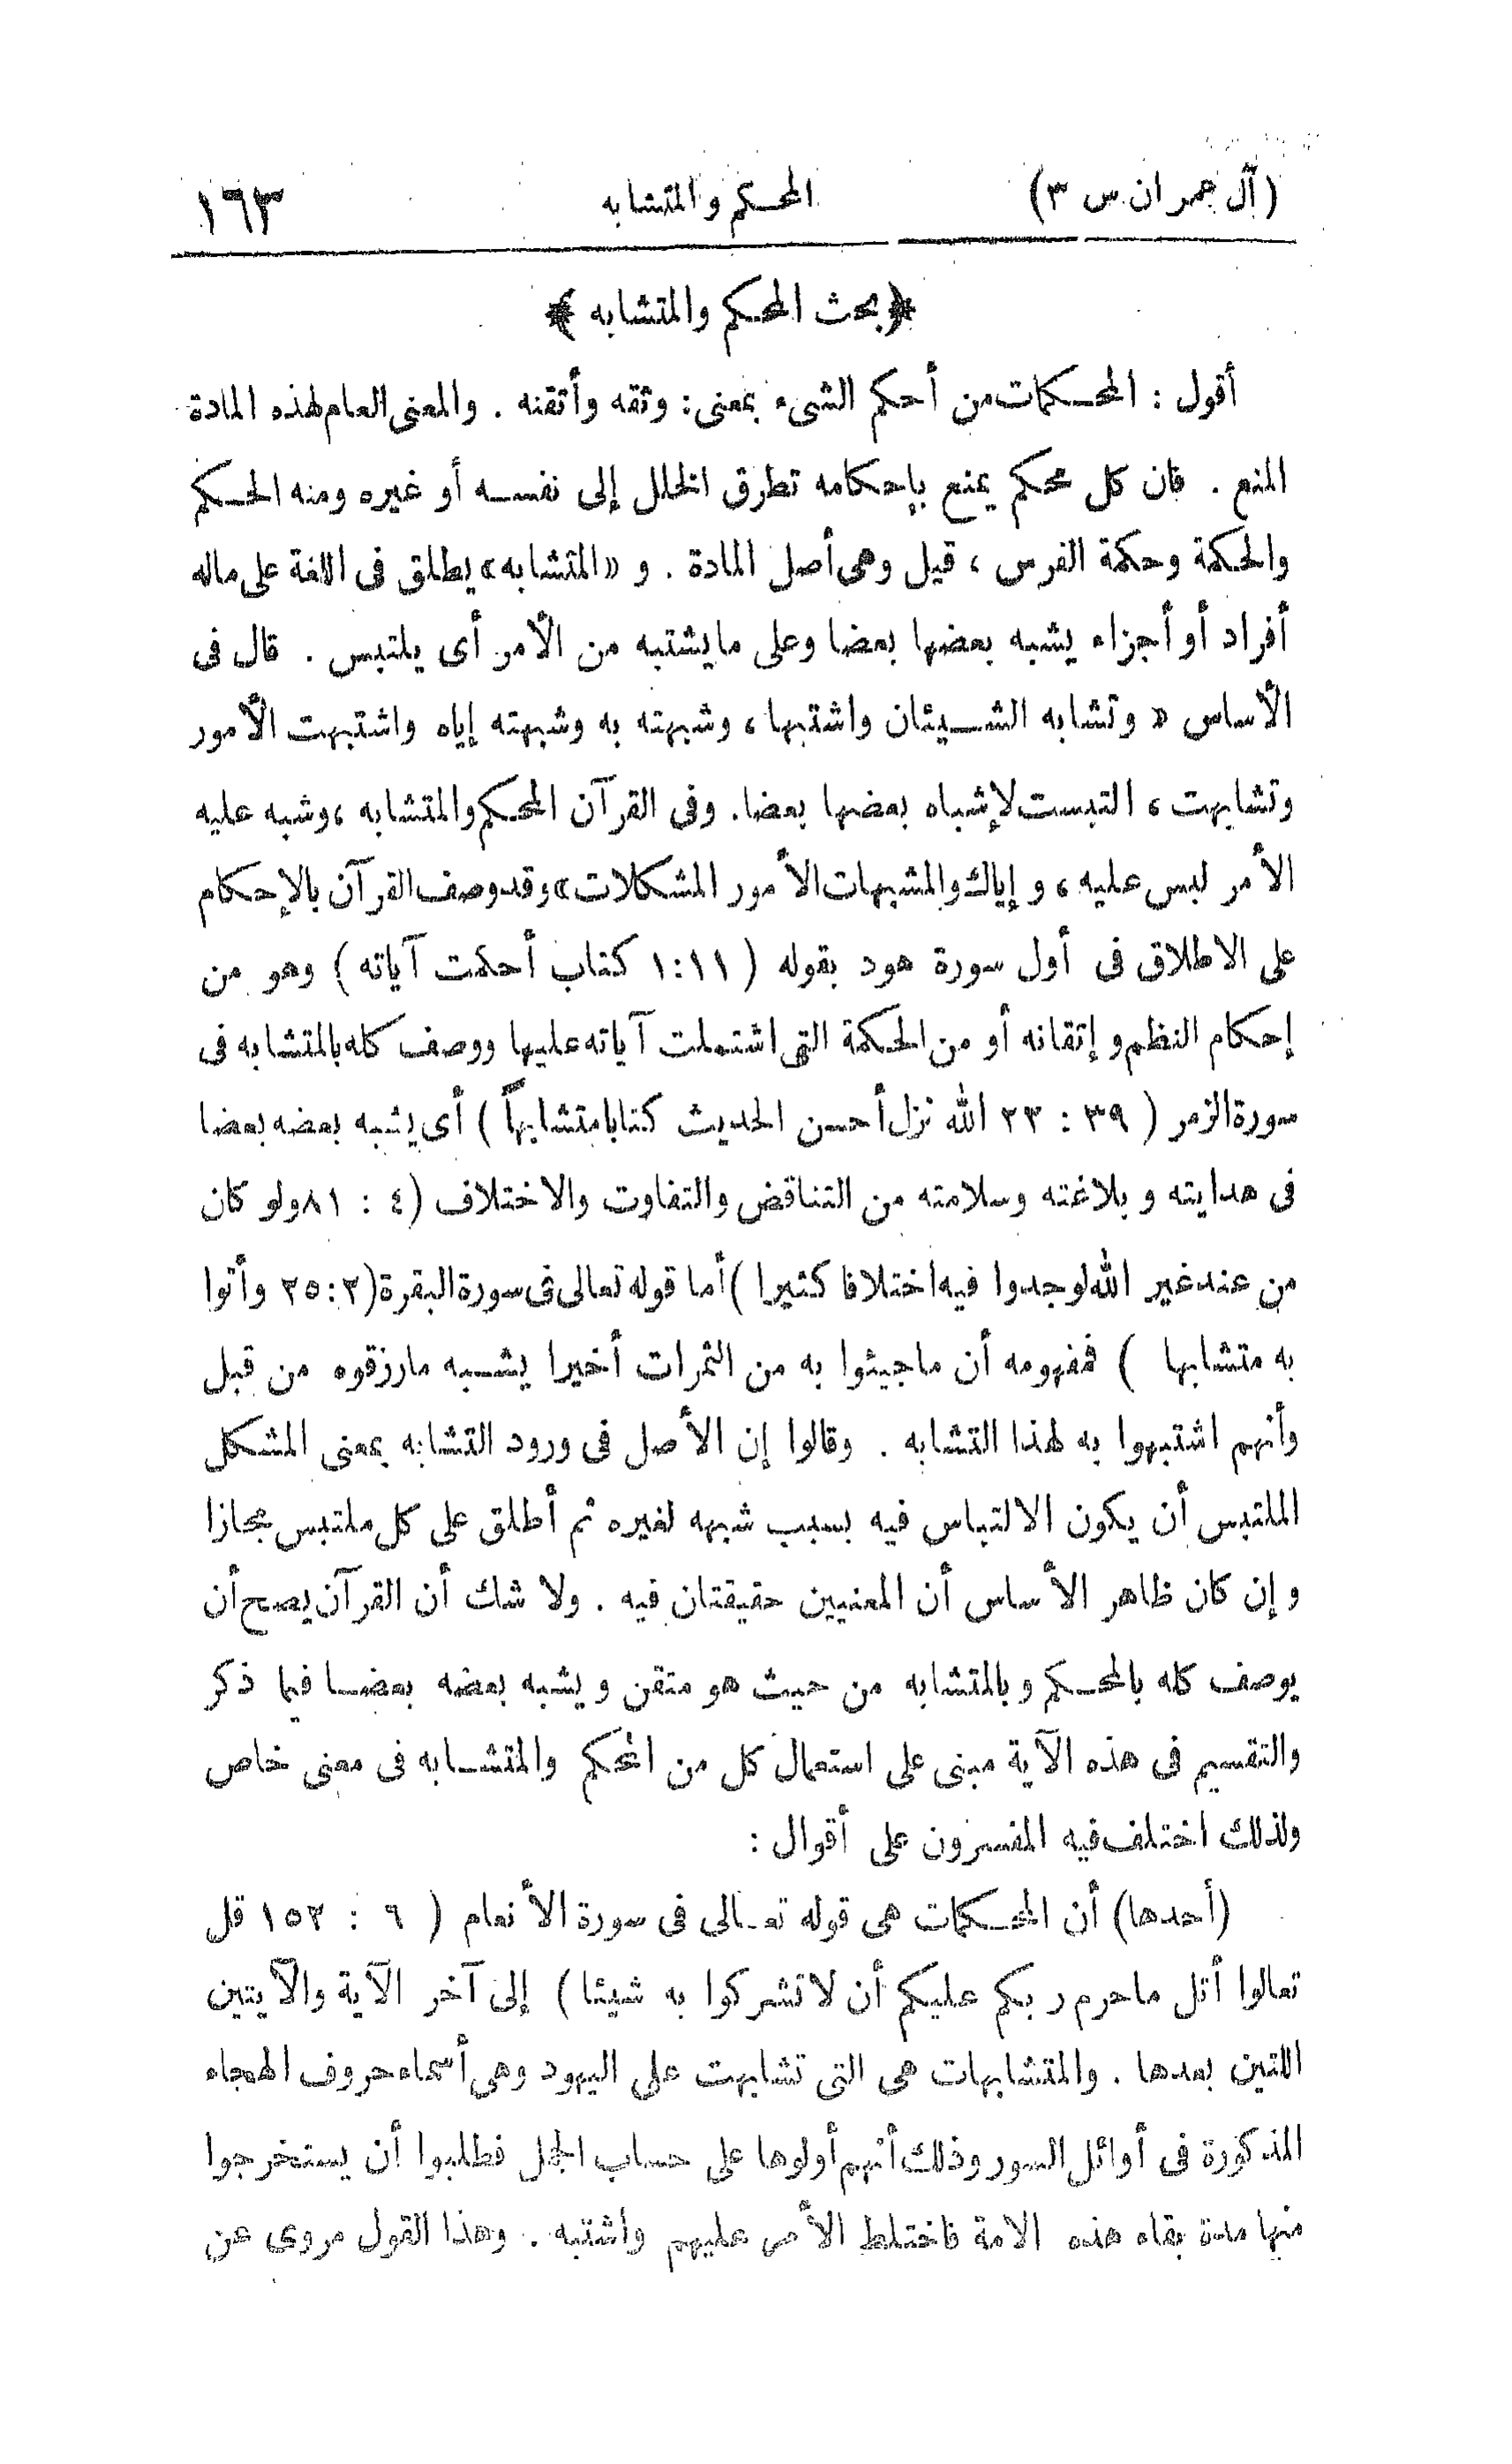 (آل عمران. س ٣)
المحكم والمتشابه
١٦٣
﴿بحث المحكم والمتشابه﴾
أقول : المحكمات من أحكم الشىء بمعنى : وثقه وأتقنه . والمعنى العام لهذه المادة
المنع . فان كل محكم يمنع بإحكامه تطرق الخلل إلى نفسه أو غيره ومنه الحكم
والحكمة وحكمة الفرس ، قيل وهى أصل المادة . و « المتشابه » يطلق فى اللغة على ماله
أفراد أو أجزاء يشبه بعضها بعضا وعلى مايشتبه من الأمر أى يلتبس . قال فى
الأساس « وتشابه الشيئان واشتبها ، وشبهته به وشبهته إياه واشتبهت الأمور
وتشابهت ، التبست لإشباه بعضها بعضا. وفى القرآن المحكم والمتشابه ، وشبه عليه
الأمر لبس عليه ، وإياك والمشبهات الأمور المشكلات » وقد وصف القرآن بالإحكام
على الاطلاق فى أول سورة هود بقوله ( ١:١١ كتاب أحكمت آياته ) وهو من
إحكام النظم وإتقانه أو من الحكمة التى اشتملت آياته عليها ووصف كله بالمتشابه فى
سورة الزمر ( ٣٩ : ٢٣ الله نزل أحسن الحديث كتابا متشابهاً ) أى يشبه بعضه بعضا
فى هدايته وبلاغته وسلامته من التناقض والتفاوت والاختلاف (٤ : ٨١ ولو كان
من عند غير الله لوجدوا فيه اختلافا كثيرا ) أما قوله تعالى فى سورة البقرة (٢:٢٥ وأتوا
به متشابها ) فمفهومه أن ماجيئوا به من الثمرات أخيرا يشبه مارزقوه من قبل
وأنهم اشتبهوا به لهذا التشابه . وقالوا إن الأصل فى ورود التشابه بمعنى المشكل
الملتبس أن يكون الالتباس فيه بسبب شبهه لغيره ثم أطلق على كل ملتبس مجازا
وإن كان ظاهر الأساس أن المعنيين حقيقتان فيه . ولا شك أن القرآن يصح أن
يوصف كله بالمحكم وبالمتشابه من حيث هو متقن ويشبه بعضه بعضا فيما ذكر
والتقسيم فى هذه الآية مبنى على استعمال كل من المحكم والمتشابه فى معنى خاص
ولذلك اختلف فيه المفسرون على أقوال :
(أحدها) أن المحكمات هى قوله تعالى فى سورة الأنعام ( ٦ : ١٥٢ قل
تعالوا أتل ماحرم ربكم عليكم أن لاتشركوا به شيئا ) إلى آخر الآية والآيتين
اللتين بعدها . والمتشابهات هى التى تشابهت على اليهود وهى أسماء حروف الهجاء
المذكورة فى أوائل السور وذلك أنهم أولوها على حساب الجمل فطلبوا أن يستخرجوا
منها مدة بقاء هذه الامة فاختلط الأمر عليهم واشتبه . وهذا القول مروى عن